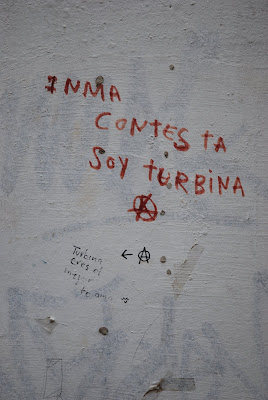 INMA
CONTESTA
SOY TURBINA
Turbina
eres el
mejor
te amo